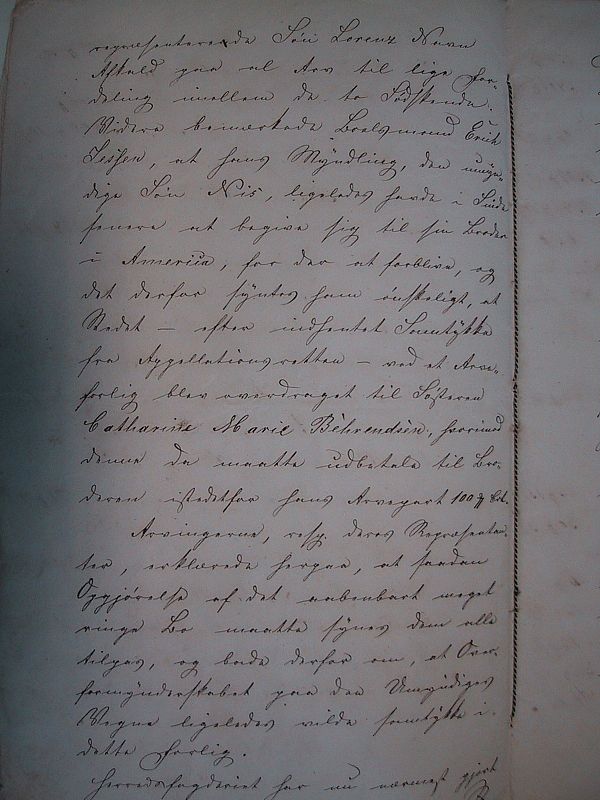 repræsenterende Søn Lorenz Navn
Afkald paa al Arv til lige For-
deling imellem de to Södskende.
Videre bemærkede Boelsmand Erich
Jessen, at hans Myndling, den umyn-
dige Søn Nis, ligeledes havde i Sinde
senere at begive sig til sin Broder
i America, for der at forblive, og
det derfor syntes ham ønskeligt, at
Stedet — efter indhentet Samtykke
fra Appellationsretten — ved et Arve-
forlig blev overdraget til Søsteren
Catharine Marie Behrendsen, hvorimod
denne da maatte udbetale til Bro-
deren istedetfor hans Arvepart 100
Arvingerne, resp. deres Repræsentan-
ter, erklærede herpaa, at saadan
Opgjørelse af det aabenbart meget
ringe Bo maatte synes dem alle
tilpas, og bade derfor om, at Over-
formynderskabet paa den Umyndiges
Vegne ligeledes vilde samtykke i
dette Forlig.
Herredsfogderiet har nu nærmest gjort